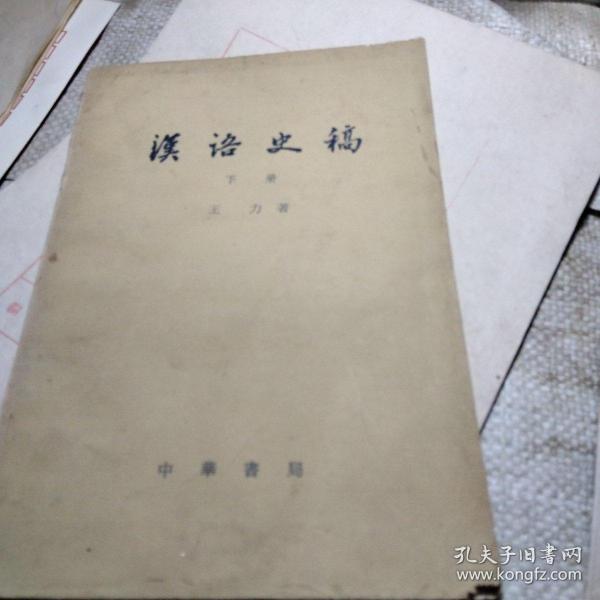 漢语史稿
下册
王力著
中華書局
孔夫子旧书网
www.kongfz.com